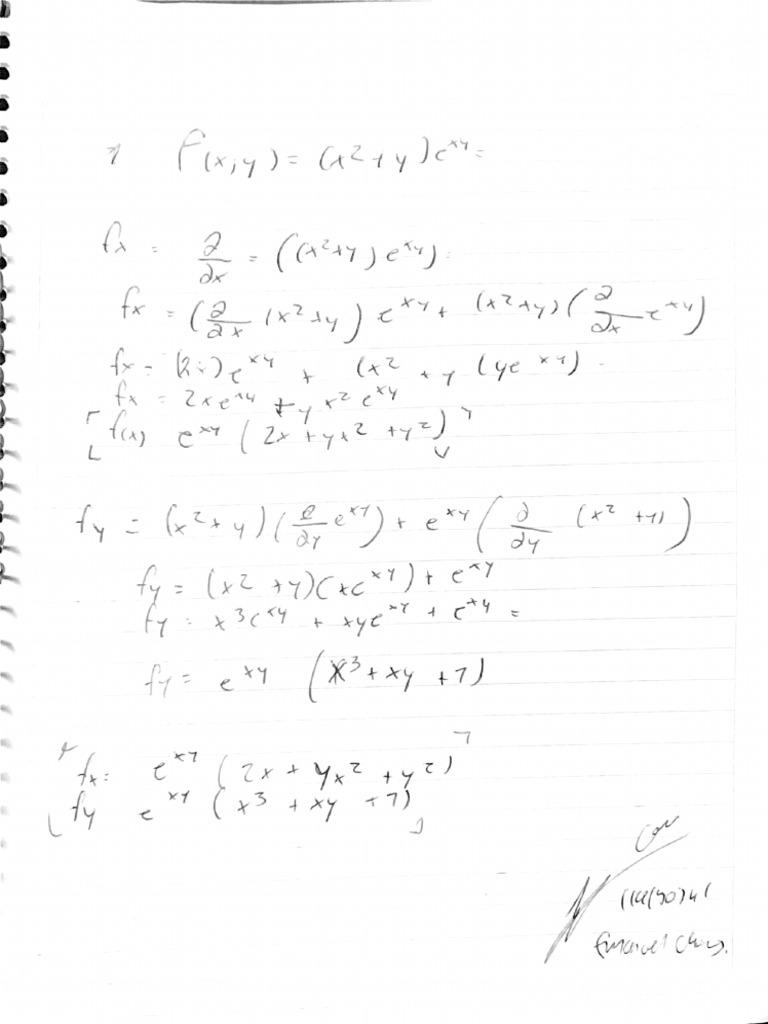 1 f(x,y) = (x²+y)e^xy =
fx = ∂/∂x = ((x²+y) e^xy)
fx = (∂/∂x (x²+y)) e^xy + (x²+y)(∂/∂x e^xy)
fx = (2x)e^xy + (x² + y (ye^xy)
fx = 2xe^xy + yx²e^xy
f(x) e^xy (2x + yx² + y²)
fy = (x²+y)(∂/∂y e^xy) + e^xy (∂/∂y (x² + y))
fy = (x² + y)(xe^xy) + e^xy
fy = x³e^xy + xye^xy + e^xy =
fy = e^xy (x³ + xy + 1)
fx = e^xy (2x + yx² + y²)
fy e^xy (x³ + xy + 1)